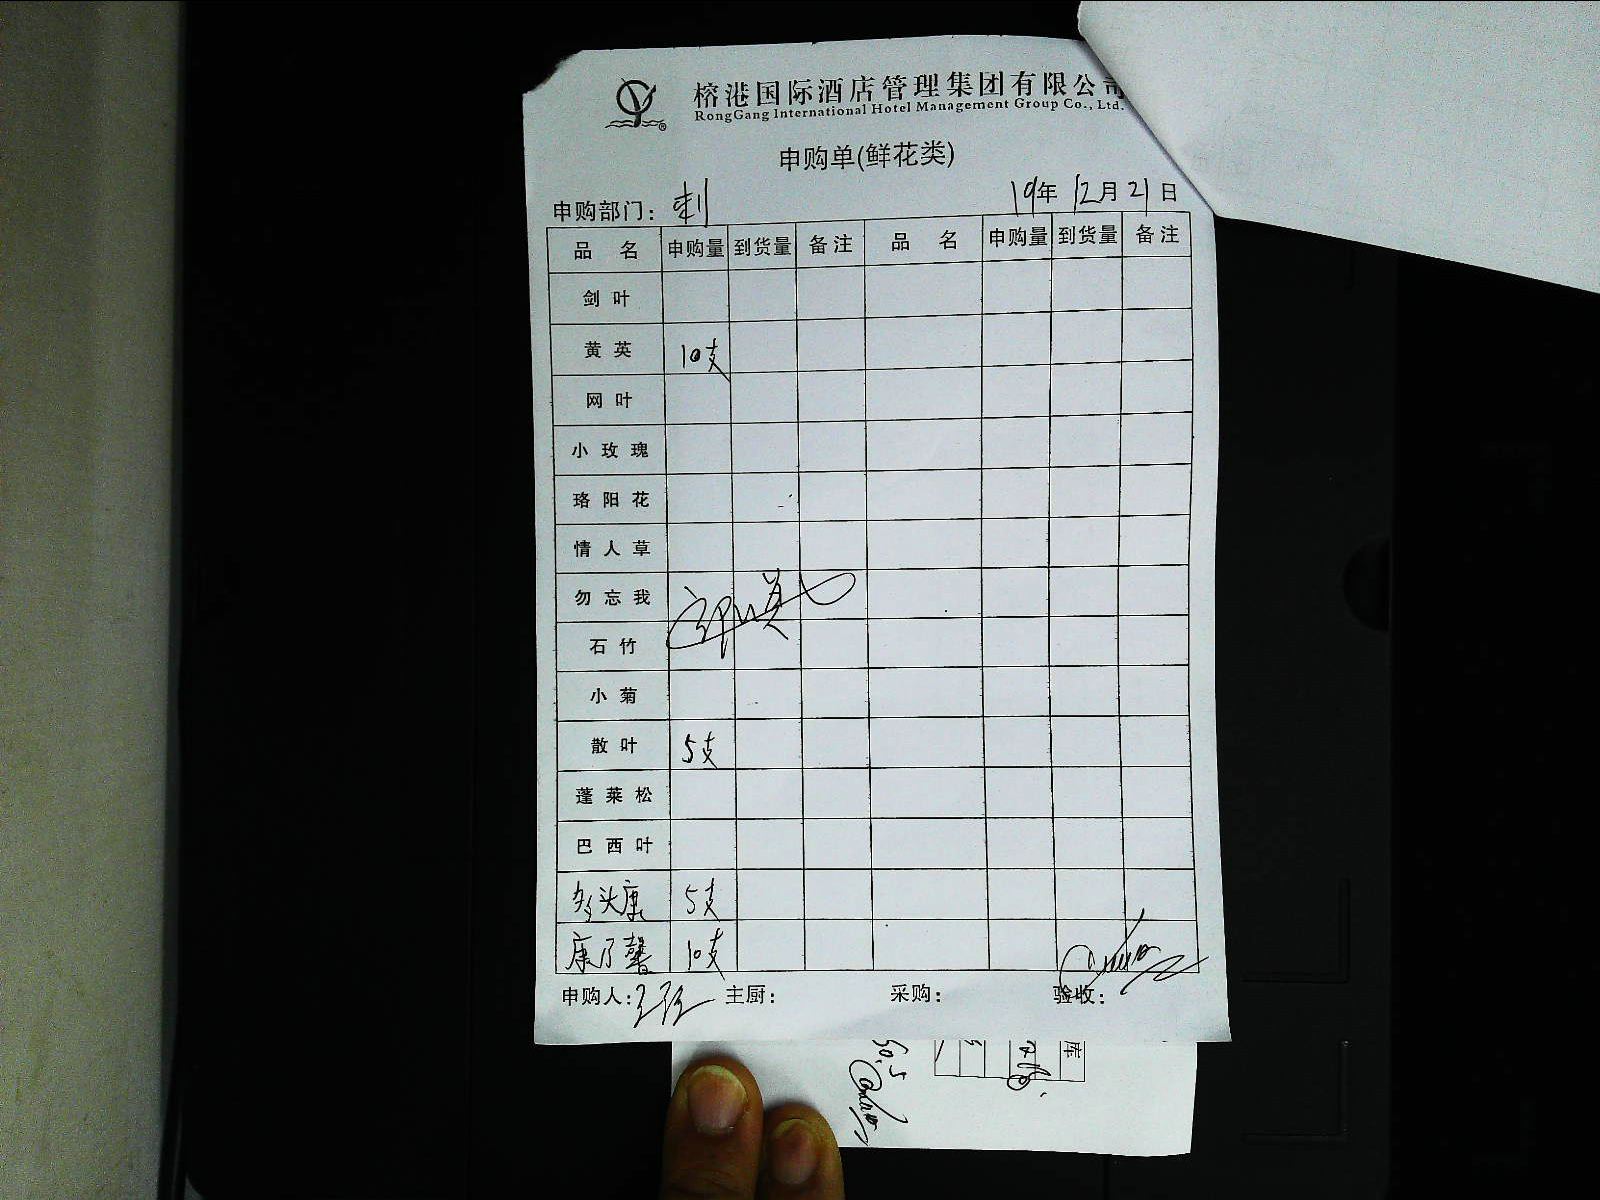 榕港国际酒店管理集团有限公司
RongGang International Hotel Management Group Co., Ltd.
申购单(鲜花类)
申购部门：刺 19年 12月 21日
品 名 申购量 到货量 备注 品 名 申购量 到货量 备注
剑叶
黄英 10支
网叶
小玫瑰
珞阳花
情人草
勿忘我
石竹
小菊
散叶 5支
蓬莱松
巴西叶
多头康 5支
康乃馨 10支
申购人： 主厨： 采购： 验收：
库
50.5